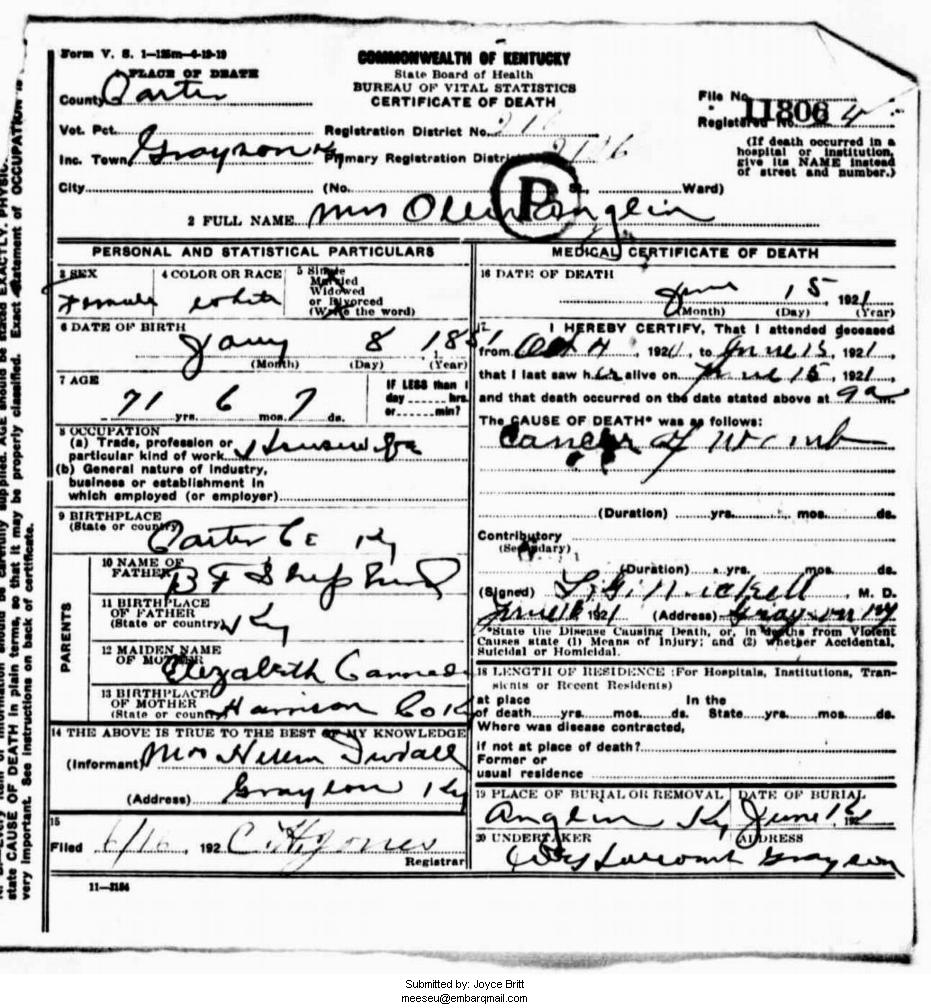 Form V. S. 1—125m—4-19-19
COMMONWEALTH OF KENTUCKY
State Board of Health
BUREAU OF VITAL STATISTICS
CERTIFICATE OF DEATH
1 PLACE OF DEATH
County Carter
File No. 11806
Registered No. 4
Vot. Pct.
Registration District No.
Inc. Town Grayson Ky
Primary Registration District
(If death occurred in a
hospital or institution,
give its NAME instead
of street and number.)
City (No. St., Ward)
P
2 FULL NAME Mrs Anglin
PERSONAL AND STATISTICAL PARTICULARS
3 SEX
Female
4 COLOR OR RACE
White
5 Single
Married
Widowed
or Divorced
(Write the word)
6 DATE OF BIRTH
Jany 8
(Month) (Day) (Year)
7 AGE
71 yrs. 6 mos. 7 ds.
IF LESS than 1
day hrs.
or min?
8 OCCUPATION
(a) Trade, profession or
particular kind of work Housewife
(b) General nature of industry,
business or establishment in
which employed (or employer)
9 BIRTHPLACE
(State or country)
Carter Co Ky
PARENTS
10 NAME OF
FATHER B F Shepherd
11 BIRTHPLACE
OF FATHER
(State or country) Ky
12 MAIDEN NAME
OF MOTHER Elizabeth
13 BIRTHPLACE
OF MOTHER
(State or country) Harrison Co Ky
14 THE ABOVE IS TRUE TO THE BEST OF MY KNOWLEDGE
(Informant) Mrs
(Address) Grayson Ky
15
Filed 6/16, 192 C. H. Jones
Registrar
11—3184
MEDICAL CERTIFICATE OF DEATH
16 DATE OF DEATH
June 15 1921
(Month) (Day) (Year)
17 I HEREBY CERTIFY, That I attended deceased
from Oct 4, 192, to June 15, 1921
that I last saw her alive on June 15, 1921
and that death occurred on the date stated above at 9a
The CAUSE OF DEATH* was as follows:
Cancer of Womb
(Duration) yrs. mos. ds.
Contributory
(Secondary)
(Duration) yrs. mos. ds.
(Signed) Nickell M. D.
June 192 (Address) Grayson Ky
*State the Disease Causing Death, or, in deaths from Violent
Causes state (1) Means of Injury; and (2) whether Accidental,
Suicidal or Homicidal.
18 LENGTH OF RESIDENCE (For Hospitals, Institutions, Tran-
sients or Recent Residents)
at place In the
of death yrs. mos. ds. State yrs. mos. ds.
Where was disease contracted,
if not at place of death?
Former or
usual residence
19 PLACE OF BURIAL OR REMOVAL
Anglin Ky
DATE OF BURIAL
June 192
20 UNDERTAKER
ADDRESS
Grayson
state CAUSE OF DEATH in plain terms, so that it may be properly classified. Exact statement of OCCUPATION is
very important. See instructions on back of certificate.
Submitted by: Joyce Britt
meeseu@embarqmail.com